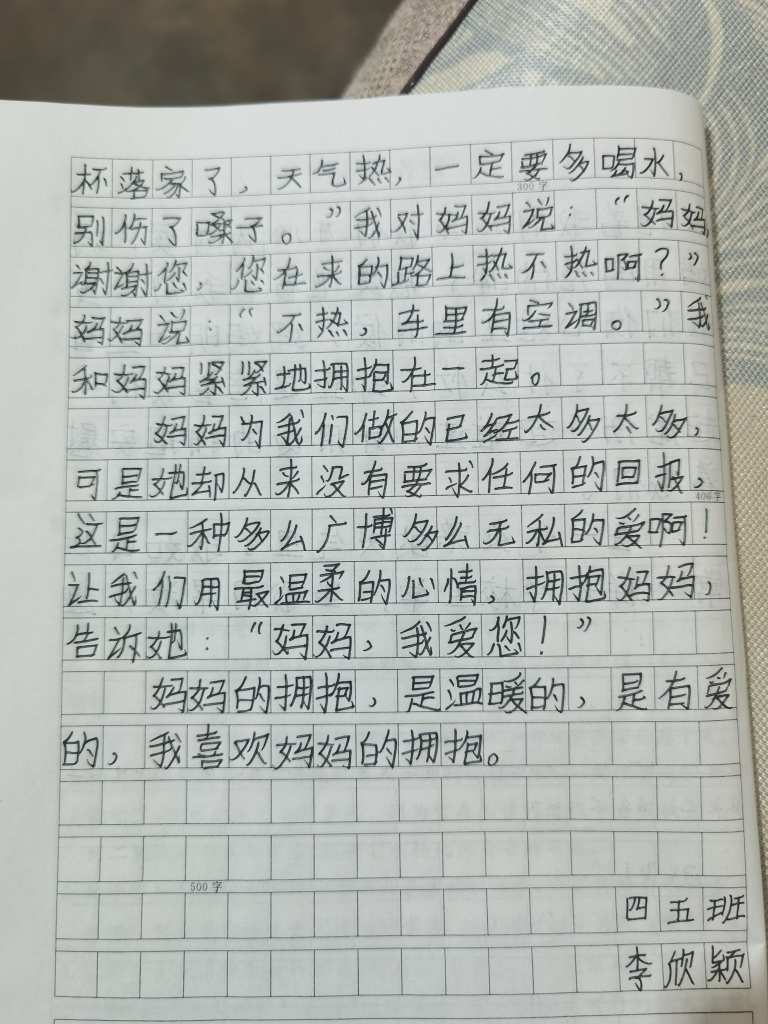 杯落家了，天气热，一定要多喝水，
300字
别伤了嗓子。”我对妈妈说：“妈妈，
谢谢您，您在来的路上热不热啊？”
妈妈说：“不热，车里有空调。”我
和妈妈紧紧地拥抱在一起。
妈妈为我们做的已经太多太多，
可是她却从来没有要求任何的回报，
400字
这是一种多么广博多么无私的爱啊！
让我们用最温柔的心情，拥抱妈妈，
告诉她：“妈妈，我爱您！”
妈妈的拥抱，是温暖的，是有爱
的，我喜欢妈妈的拥抱。
500字
四五班
李欣颖